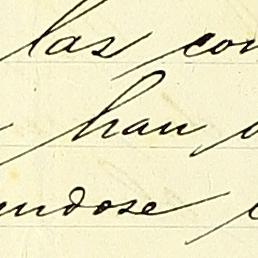 las con
han
ndose